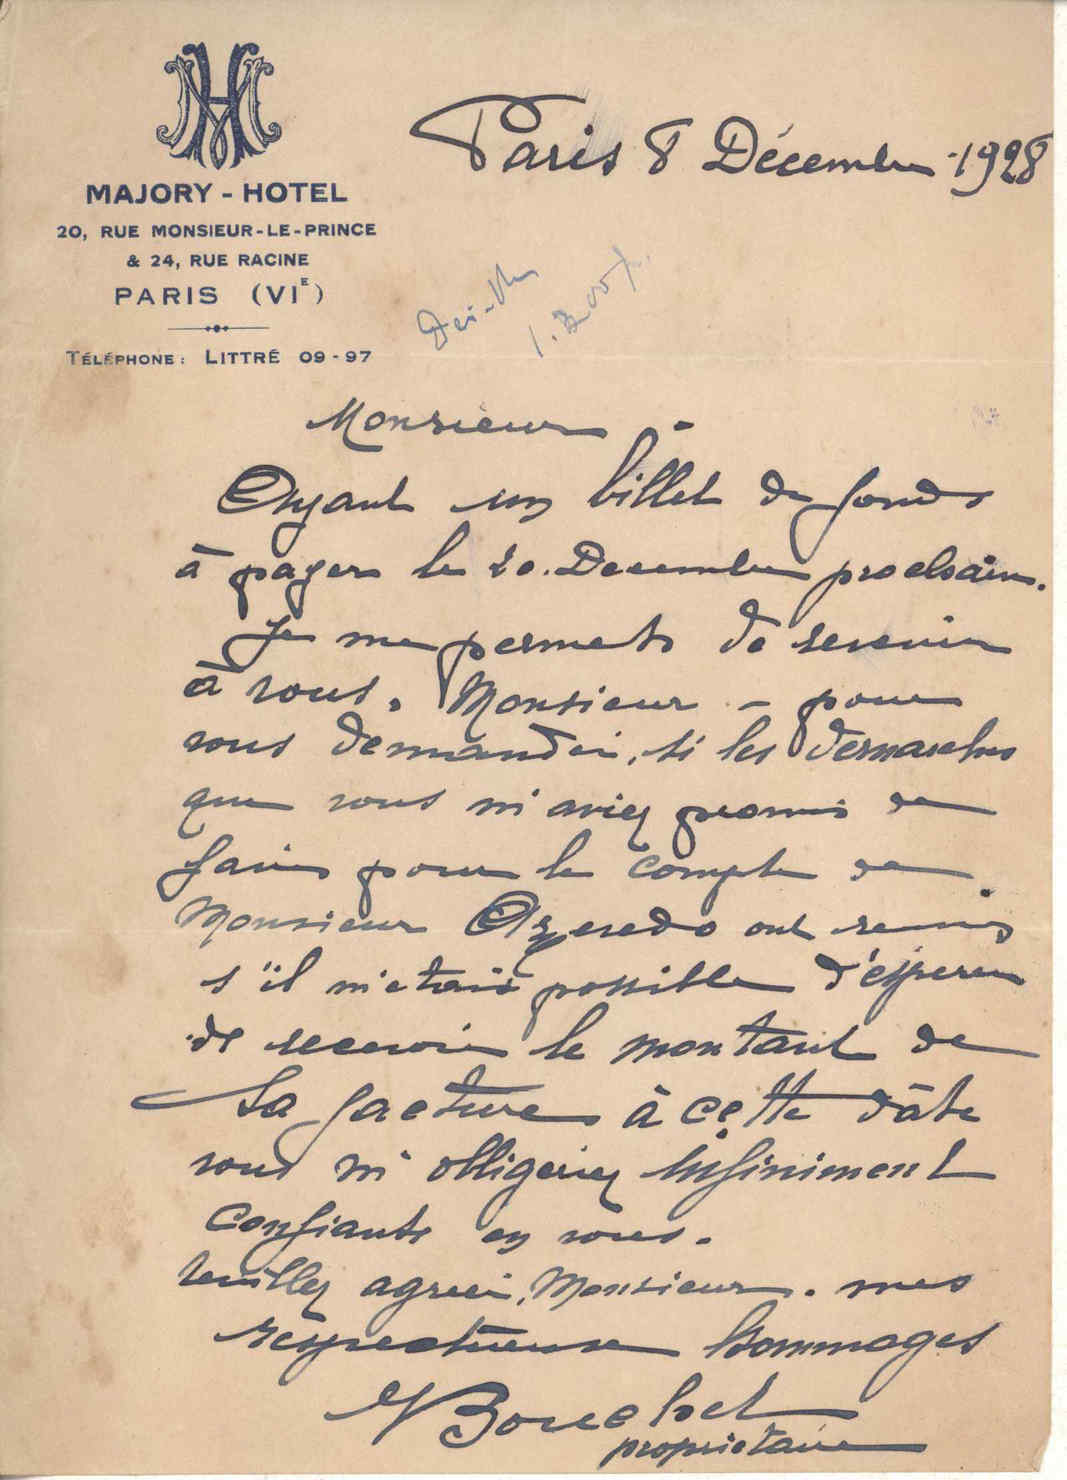 MAJORY - HOTEL
20, RUE MONSIEUR-LE-PRINCE
& 24, RUE RACINE
PARIS (VIE)
TÉLÉPHONE : LITTRÉ 09-97
Paris 8 Décembre 1928
Monsieur -
Ayant un billet de fonds
à payer le 20. Decembre prochain.
Je me permets de revenir
à vous, Monsieur - pour
vous demander, si les demarches
que vous m'aviez promis de
faire pour le compte de
Monsieur Azeredo ont reussis
s'il m'etais possible d'esperer
de recevoir le montant de
sa facture à cette dâte
vous m'obligeriez infiniment
Confiante en vous.
Veuillez agreer, Monsieur. mes
respectueux hommages
Bouchet
propriétaire